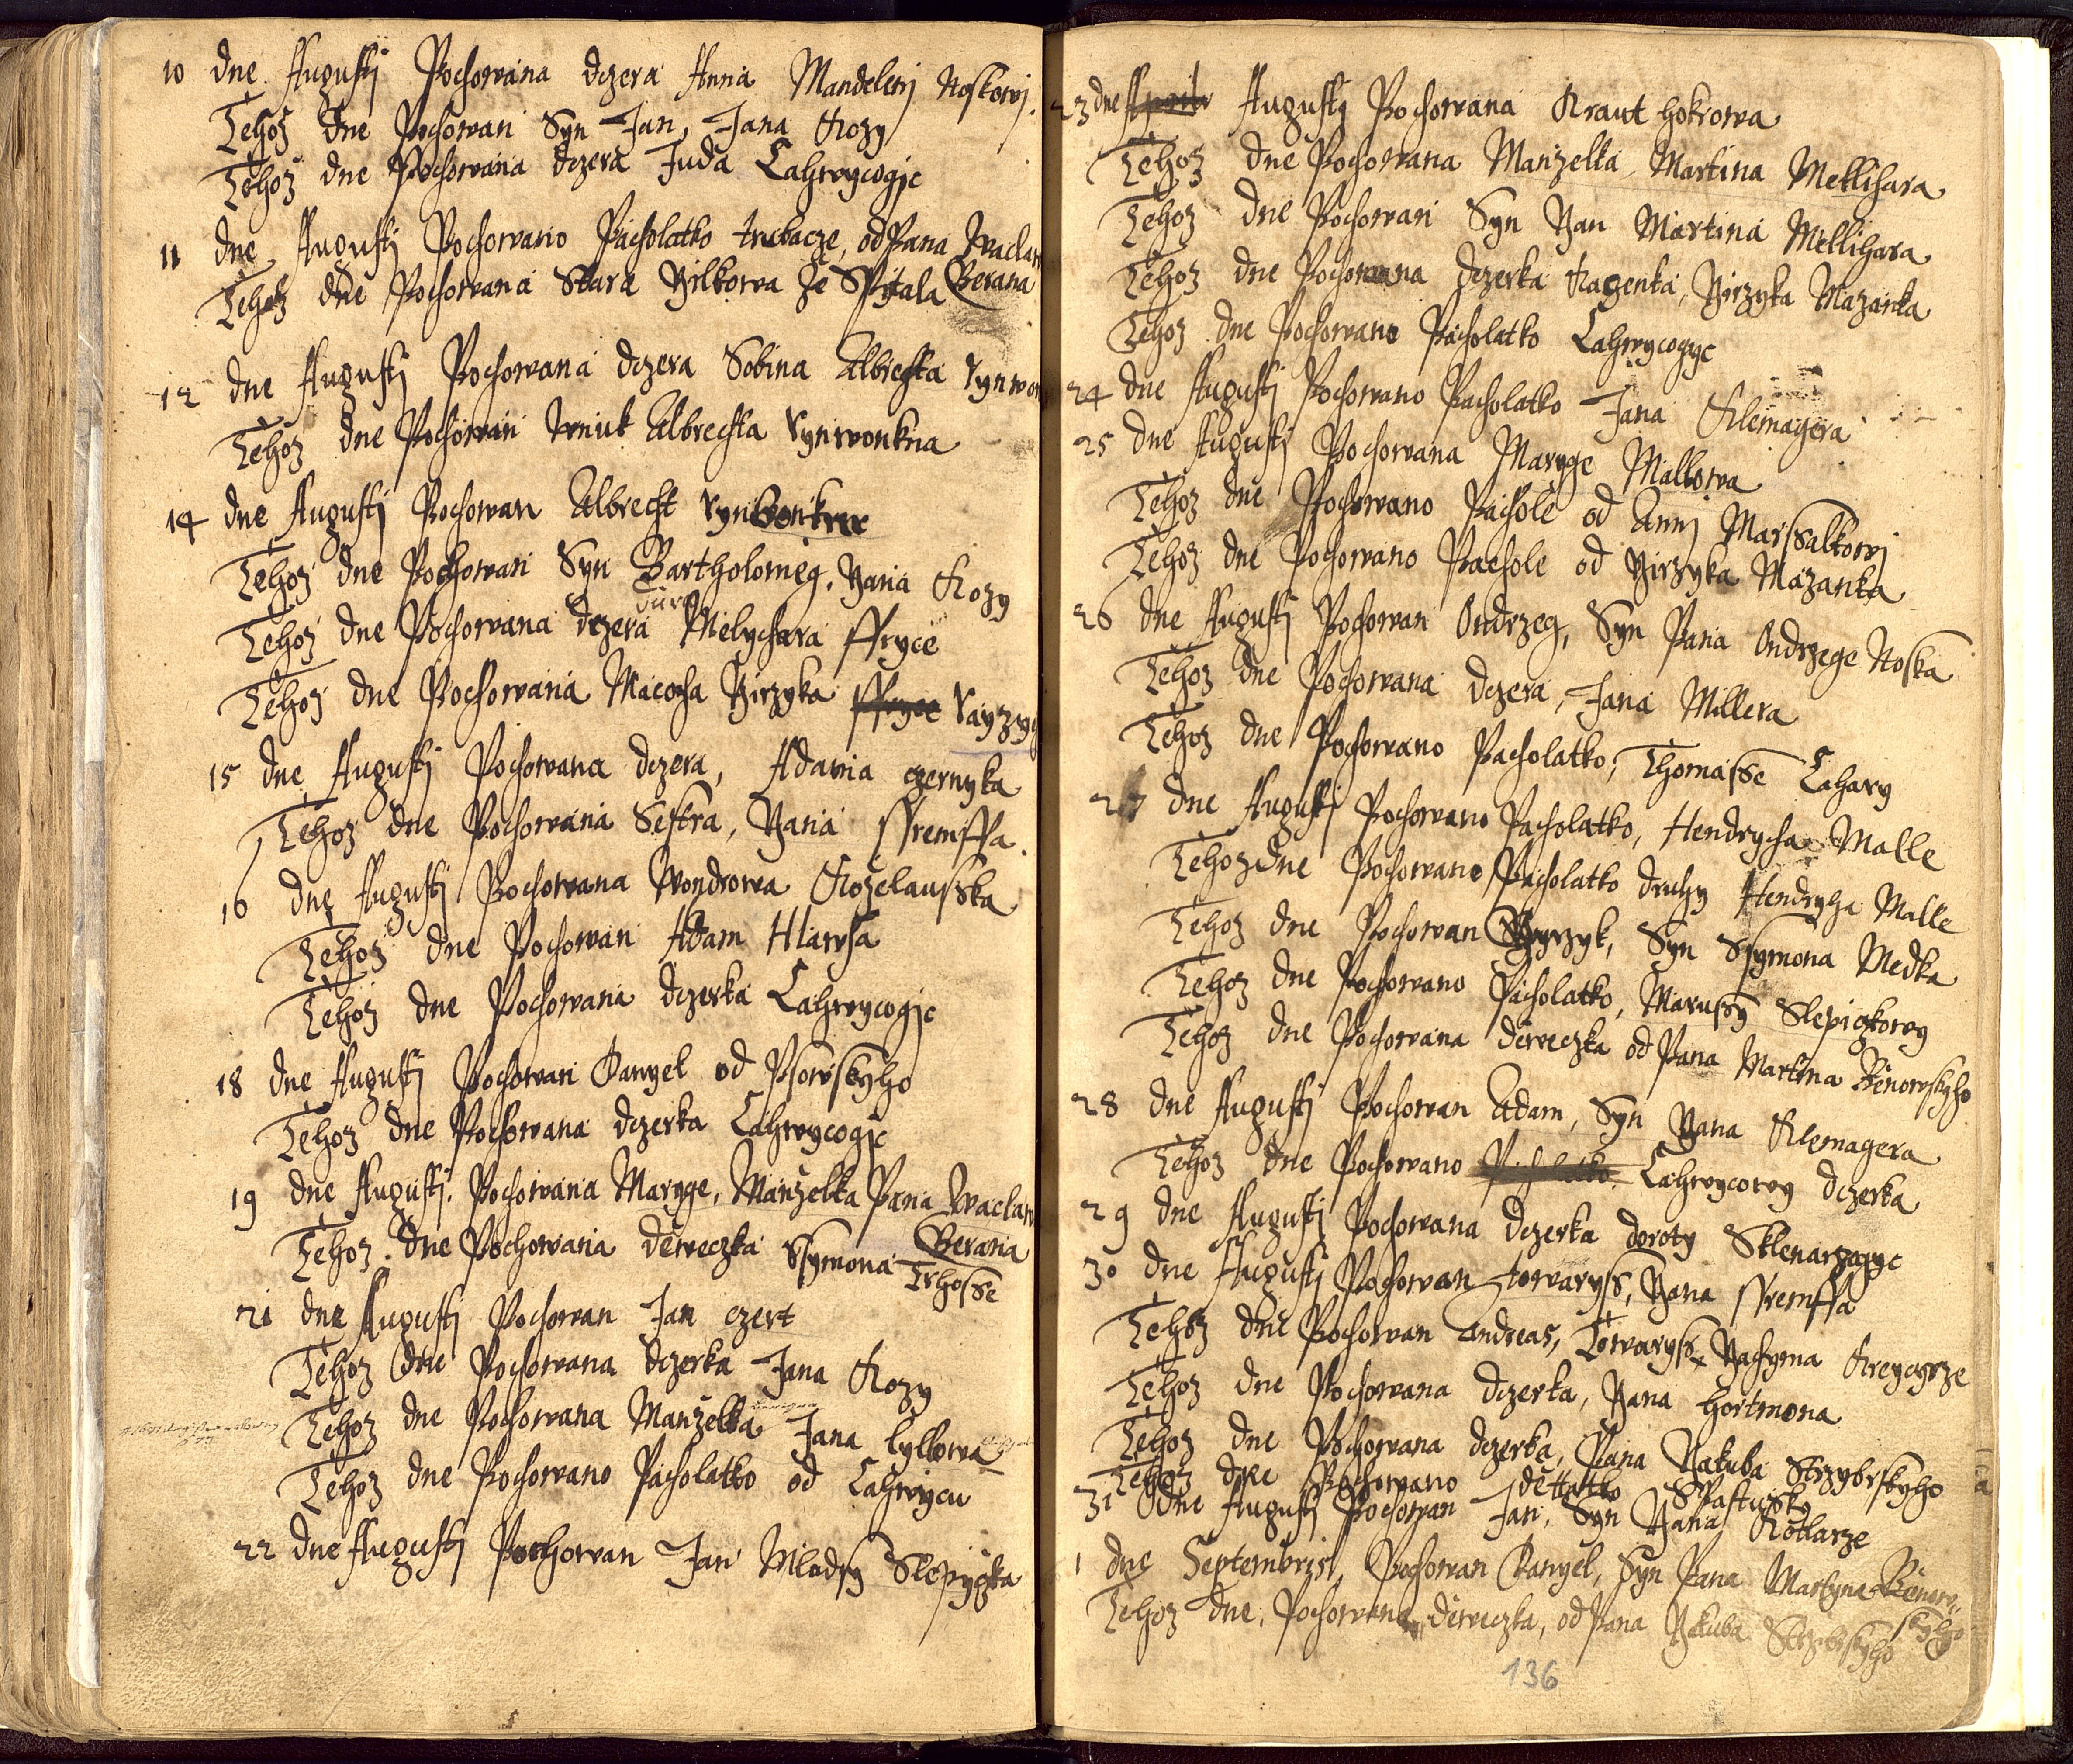 10 dne Augusti Pochowana dczera Anna Mandeleny Noskowi.
Tehoz dne Pochowan Syn Jan, Jana Kozy
Tehoz dne Pochowana dczera Juda Lahwycogic
11 dne Augusti Pochowano Pacholatko trubacze, od Pana Waclaw
Tehoz dne Pochowana Stara Yilkowa ze Sspitala Berana
12 dne Augusti Pochowana dczera Sobina Albrechta
Tehoz dne Pochowan Wnuk Albrechta Rynwonkna
14 dne Augusti Pochowan Albrecht
Tehoz dne Pochowan Syn Bartholomeg, Yana Kozy
Tehoz dne Pochowana dczera Melychara ffryce
Tehoz dne Pochowana Macocha Yirzyka ffryce
15 dne Augusti Pochowana dczera, Adama czernyka
Tehoz dne Pochowana Sestra, Yana ffremffa.
16 dne Augusti Pochowana Wondrowa Kozelausska
Tehoz dne Pochowan Adam Hlawsa
Tehoz dne Pochowana dczerka Lahwycogic
18 dne Augusti Pochowan Danyel od Psowskyho
Tehoz dne Pochowana dczerka Lahwycogic
19 dne Augusti. Pochowana Maryge, Manzelka Pana Waclaw
Berana
Tehoz dne Pochowana deweczka Ssymona Trhosse
21 dne Augusti Pochowan Jan czert
Tehoz dne Pochowana dczerka Jana Kozy
Tehoz dne Pochowana Manzelka Jana Lyllowa
Tehoz dne Pochowano Pacholatko od Lahwycu
22 dne Augusti Pochowan Jan Mladsy Slepyczka
23 dne Augusti Pochowana Kraut hokrowa
Tehoz dne Pochowana Manzelka Martina Mellihara
Tehoz dne Pochowan Syn Yan Martina Mellihara
Tehoz dne Pochowana dczerka Kagenka, Yirzyka Mazanka
Tehoz dne Pochowano Pacholatko Lahwycogyc
24 dne Augusti Pochowano Pacholatko Jana Klemagera
25 dne Augusti Pochowana Maryge Mallowa
Tehoz dne Pochowano Pachole od Anny Marssalkowi
Tehoz dne Pochowano Pachole od Yirzyka Mazanka
26 dne Augusti Pochowan Ondrzeg, Syn Pana Ondrzege Noska
Tehoz dne Pochowana dczera, Jana Millera
Tehoz dne Pochowano Pacholatko, Thomasse Lahary
27 dne Augusti Pochowano Pacholatko, Hendrycha Malle
Tehoz dne Pochowano Pacholatko druhy Hendryha Malle
Tehoz dne Pochowan Yyrzyk, Syn Ssymona Medka
Tehoz dne Pochowano Pacholatko, Marussy Slepiczkowy
Tehoz dne Pochowana deweczka od Pana Martina Benowskyho
28 dne Augusti Pochowan Adam, Syn Yana Klemagera
Tehoz dne Pochowano Pacholatko Lahwycowy dczerka
29 dne Augusti Pochowana dczerka doroty Sklenarzogyc
30 dne Augusti Pochowan towaryss, Yana ffremffa
Tehoz dne Pochowan Andreas, Towaryss Yachyma Kreyczyrze
Tehoz dne Pochowana dczerka, Yana hortmona
Tehoz dne Pochowana dczerka, Pana Yakuba Strzybrskyho
Tehoz dne Pochowano dettatko Spastussky
31 dne Augusti Pochowan Jan, Syn Yana Kotlarze
1 dne Septembris, Pochowan Danyel, Syn Pana Martyna Benow
skyho
Tehoz dne, Pochowana deweczka, od Pana Yakuba Strzybrskyho
136